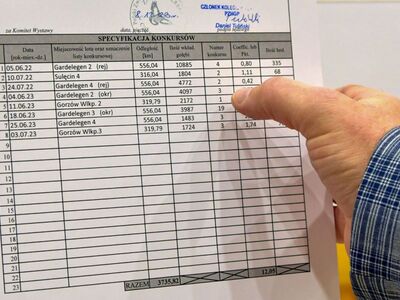 za Komitet Wystawy
CZŁONEK KOLEG
Daniel
SPECYFIKACJA KONKURSÓW
Data [rok-mies.-dz.] Miejscowość lotu oraz oznaczenie listy konkursowej Odległość [km] Ilość wkład. gołębi Numer konkursu Coeffic. lub Pkt. Ilość list
1 05.06.22 Gardelegen 2 (rej) 556,04 10885 4 0,80 335
2 10.07.22 Sulęcin 4 316,04 1804 2 1,11 68
3 24.07.22 Gardelegen 4 (rej) 556,04 4772 2 0,42
4 04.06.23 Gardelegen 2 (okr) 556,04 4097 3
5 11.06.23 Gorzów Wlkp. 2 319,79 2172 1
6 18.06.23 Gardelegen 3 (okr) 556,04 3987 19
7 25.06.23 Gardelegen 4 556,04 1483 3
8 03.07.23 Gorzów Wlkp.3 319,79 1724 3 1,74
9
10
11
12
13
14
15
16
17
18
19
20
21
22
23
RAZEM 3735,82 12,05